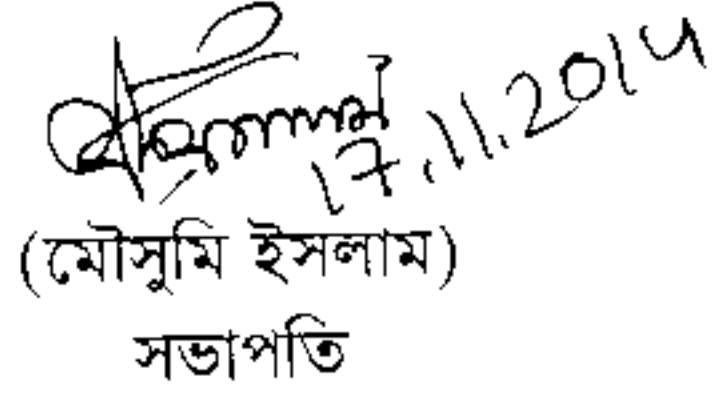 17.11.2014
(মৌসুমি ইসলাম)
সভাপতি